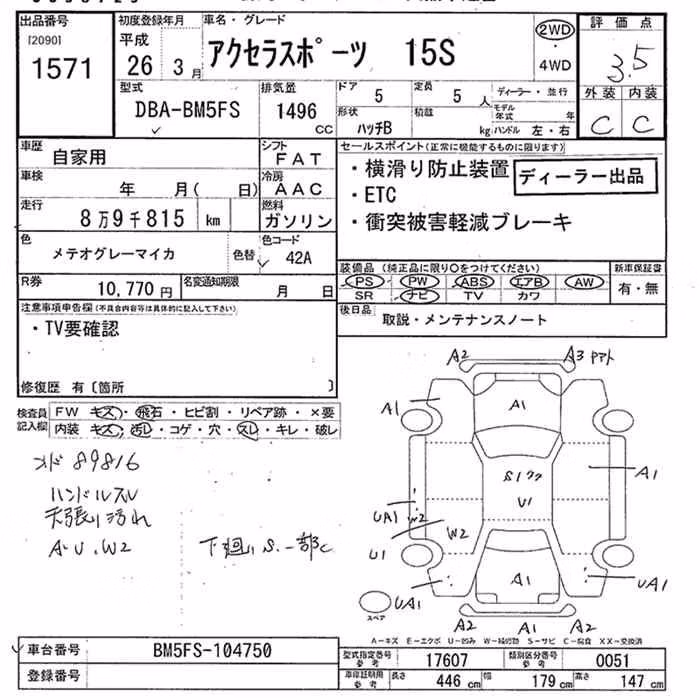 出品番号
[2090]
1571
初度登録年月
平成
26 3月
車名・グレード
アクセラスポーツ 15S
2WD
・
4WD
評価点
3.5
外装 内装
C C
型式
DBA-BM5FS
排気量
1496
CC
ドア
5
定員
5 人
ディーラー・並行
形状
ハッチB
積載
kg
モデル年式
年
ハンドル 左・右
車歴
自家用
シフト
FAT
車検
年 月( 日)
冷房
AAC
走行
8万9千815 km
燃料
ガソリン
色
メテオグレーマイカ
色替
色コード
42A
R券
10,770円
名変通知期限
月 日
セールスポイント(正常に機能するものに限ります)
・横滑り防止装置
ディーラー出品
・ETC
・衝突被害軽減ブレーキ
装備品 (純正品に限り○をつけてください)
PS PW ABS エアB AW
SR ナビ TV カワ
新車保証書
有・無
後日品
取説・メンテナンスノート
注意事項申告欄(不具合内容等は具体的に記入して下さい)
・TV要確認
修復歴 有〔箇所 〕
検査員記入欄
FW キズ・飛石・ヒビ割・リペア跡・×要
内装 キズ・汚れ・コゲ・穴・スレ・キレ・破レ
89816
ハンドルスレ
天張り汚れ
A・U、W2
下廻りS、一部C
A2
A3
A1
A1
S1
U1
A1
UA1 W2
W2
U1
UA1
A1
UA1
A2
A2
スペア
A-キズ E-エクボ U-凹み W-補修跡 S-サビ C-腐食 XX-交換済
車台番号
BM5FS-104750
登録番号
型式指定番号
参考
17607
類別区分番号
参考
0051
車庫証明用
参考
長さ
446 cm
幅
179 cm
高さ
147 cm